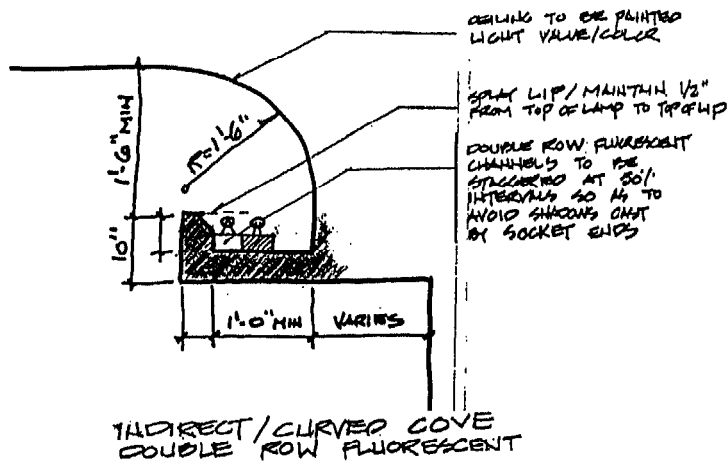 CEILING TO BE PAINTED
LIGHT VALUE/COLOR
SPLAY LIP/MAINTAIN 1/2"
FROM TOP OF LAMP TO TOP OF LIP
DOUBLE ROW FLUORESCENT
CHANNELS TO BE
STAGGERED AT 50%
INTERVALS SO AS TO
AVOID SHADOWS CAST
BY SOCKET ENDS
1'-6" MIN
r=1'-6"
10"
1'-0" MIN
VARIES
INDIRECT/CURVED COVE
DOUBLE ROW FLUORESCENT